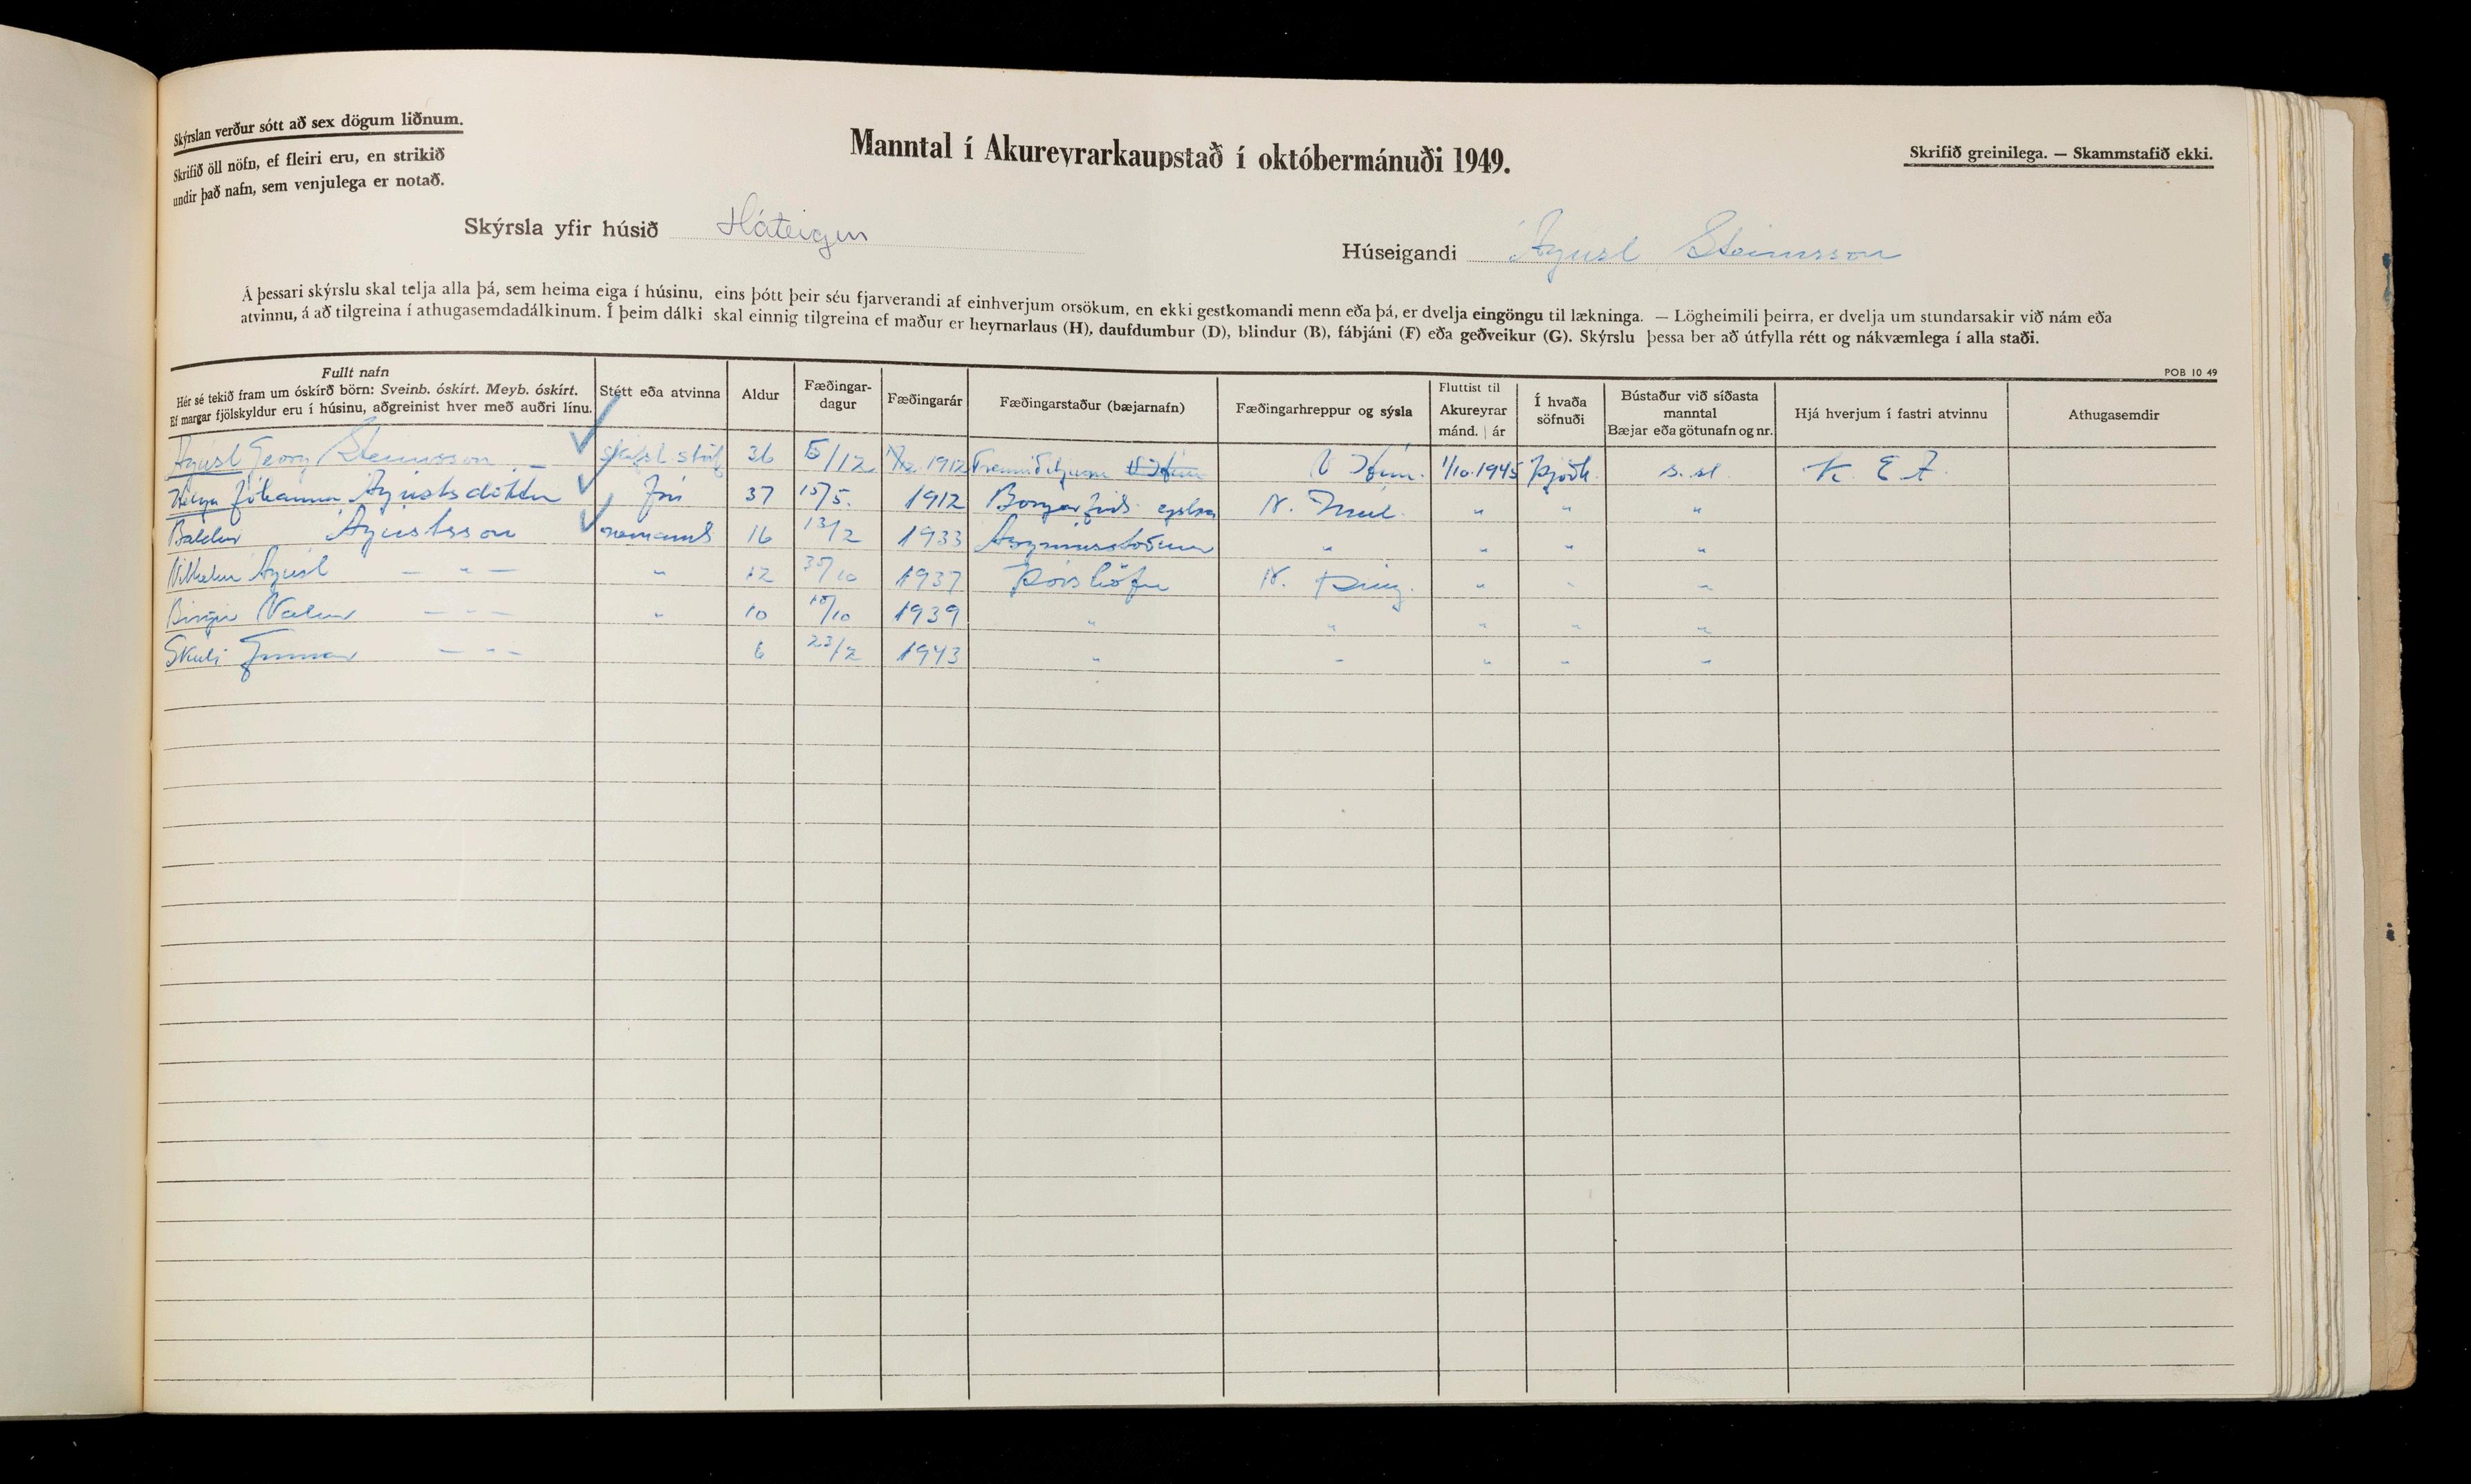 Skýrslan verður sótt að sex dögum liðnum.
Skrifið öll nöfn, ef fleiri eru, en strikið
undir það nafn, sem venjulega er notað.
Manntal í Akureyrarkaupstað í októbermánuði 1949.
Skrifið greinilega. — Skammstafið ekki.
Skýrsla yfir húsið Háteigur
Húseigandi Ágúst Steinsson
Á þessari skýrslu skal telja alla þá, sem heima eiga í húsinu, eins þótt þeir séu fjarverandi af einhverjum orsökum, en ekki gestkomandi menn eða þá, er dvelja eingöngu til lækninga. — Lögheimili þeirra, er dvelja um stundarsakir við nám eða
atvinnu, á að tilgreina í athugasemdadálkinum. Í þeim dálki skal einnig tilgreina ef maður er heyrnarlaus (H), daufdumbur (D), blindur (B), fábjáni (F) eða geðveikur (G). Skýrslu þessa ber að útfylla rétt og nákvæmlega í alla staði.
POB 10 49
Fullt nafn
Hér sé tekið fram um óskírð börn: Sveinb. óskírt. Meyb. óskírt.
Ef margar fjölskyldur eru í húsinu, aðgreinist hver með auðri línu.
Stétt eða atvinna
Aldur
Fæðingar-
dagur
Fæðingarár
Fæðingarstaður (bæjarnafn)
Fæðingarhreppur og sýsla
Fluttist til
Akureyrar
mánd. ár
Í hvaða
söfnuði
Bústaður við síðasta
manntal
Bæjar eða götunafn og nr.
Hjá hverjum í fastri atvinnu
Athugasemdir
Ágúst Georg Steinsson 36 5/12 1912 V Hún. 1/10.1945 Þjóðk. s. st. K E A
Helga Jóhanna Ágústsdóttir frú 37 15/5. 1912 Borgarfirði eystra N. Múl. " " "
Baldur Ágústsson nemandi 16 13/2 1933 " " " "
Vilhelm Ágúst — " — " 12 30/10 1937 Þórshöfn N. Þing. " " "
Birgir Valur — " — " 10 10/10 1939 " " " " "
Skúli Gunnar — " — 6 23/2 1943 " " " " "